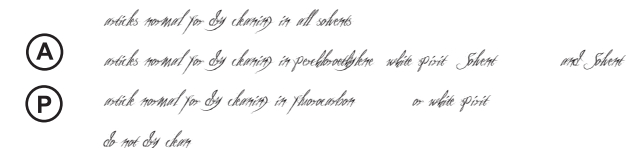 articles normal for dry cleaning in all solvents
A articles normal for dry cleaning in perchloroethylene white spirit Solvent and Solvent
P article normal for dry cleaning in fluorocarbon or white spirit
do not dry clean